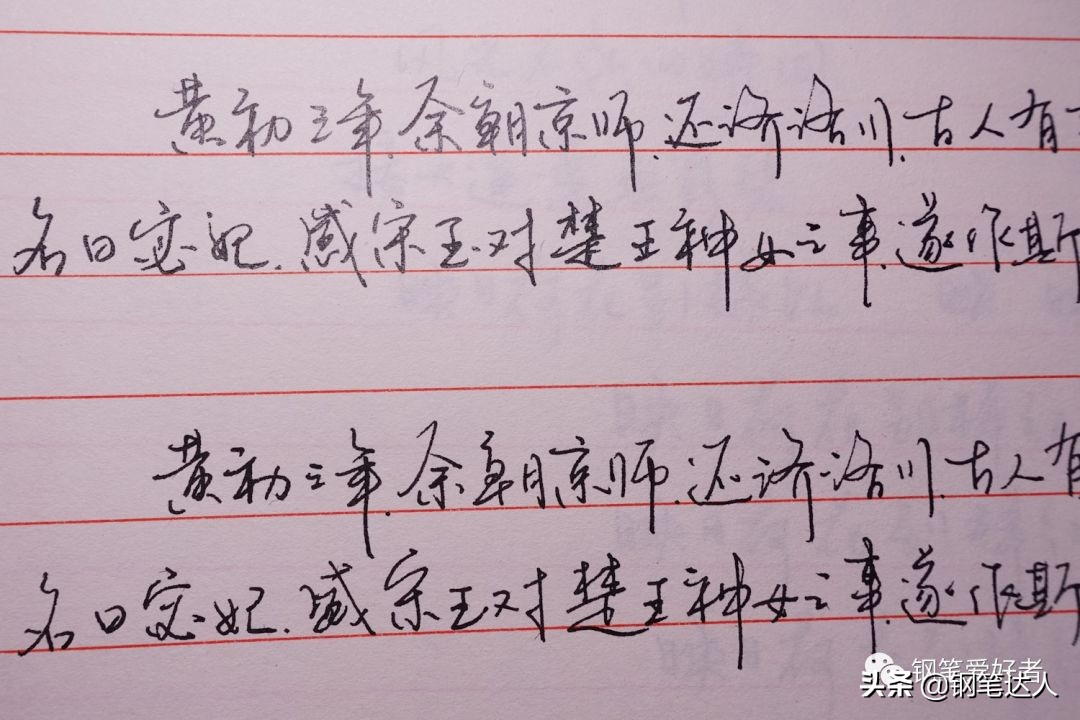 黄初三年，余朝京师，还济洛川，古人有
名曰宓妃。感宋玉对楚王神女之事，遂作斯
黄初三年，余朝京师，还济洛川，古人有
名曰宓妃。感宋玉对楚王神女之事，遂作斯
钢笔爱好者
头条@钢笔达人